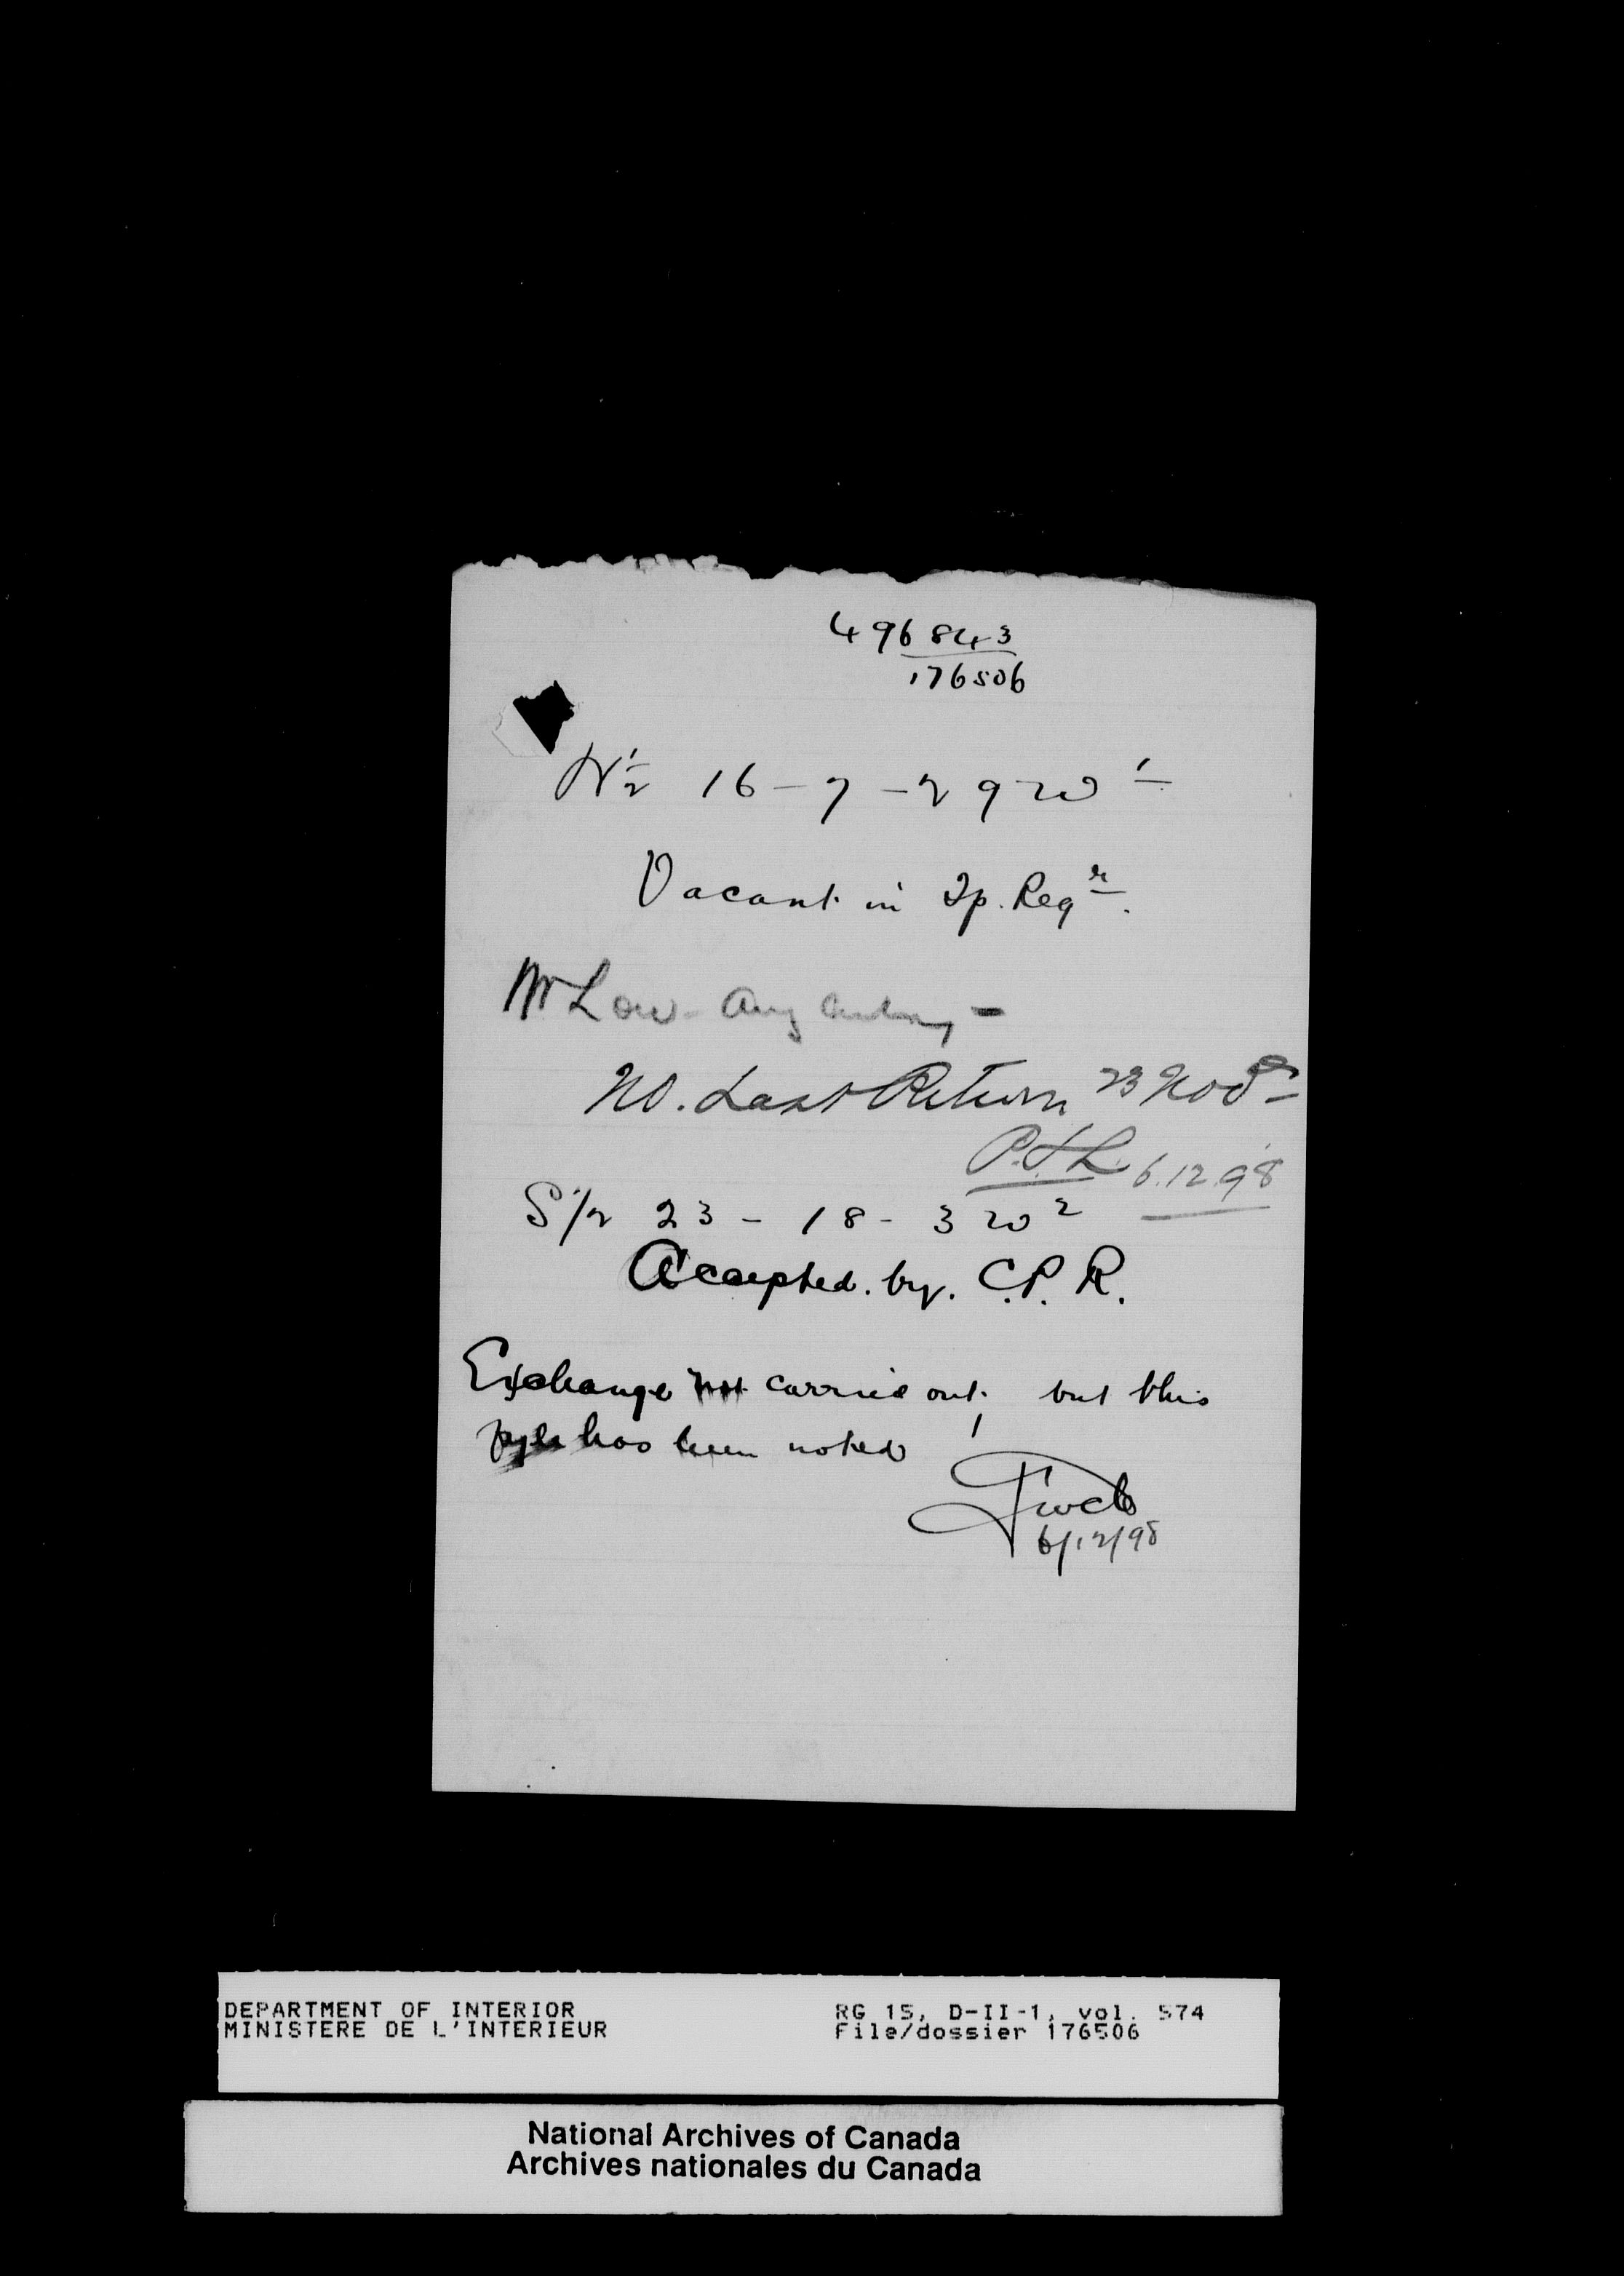 496843
176506
N½ 16-7-29 W 1
Vacant in Tp. Regr.
Mr Low. Any entry -
No. Last Return 23 Nov
P.J.L. 6.12.98
S½ 23 - 18 - 3 W 2
Accepted. by. C.P.R.
Exchange not carried out, but this
has been noted
6/12/98
DEPARTMENT OF INTERIOR
MINISTERE DE L'INTERIEUR
RG 15, D-II-1, vol. 574
File/dossier 176506
National Archives of Canada
Archives nationales du Canada